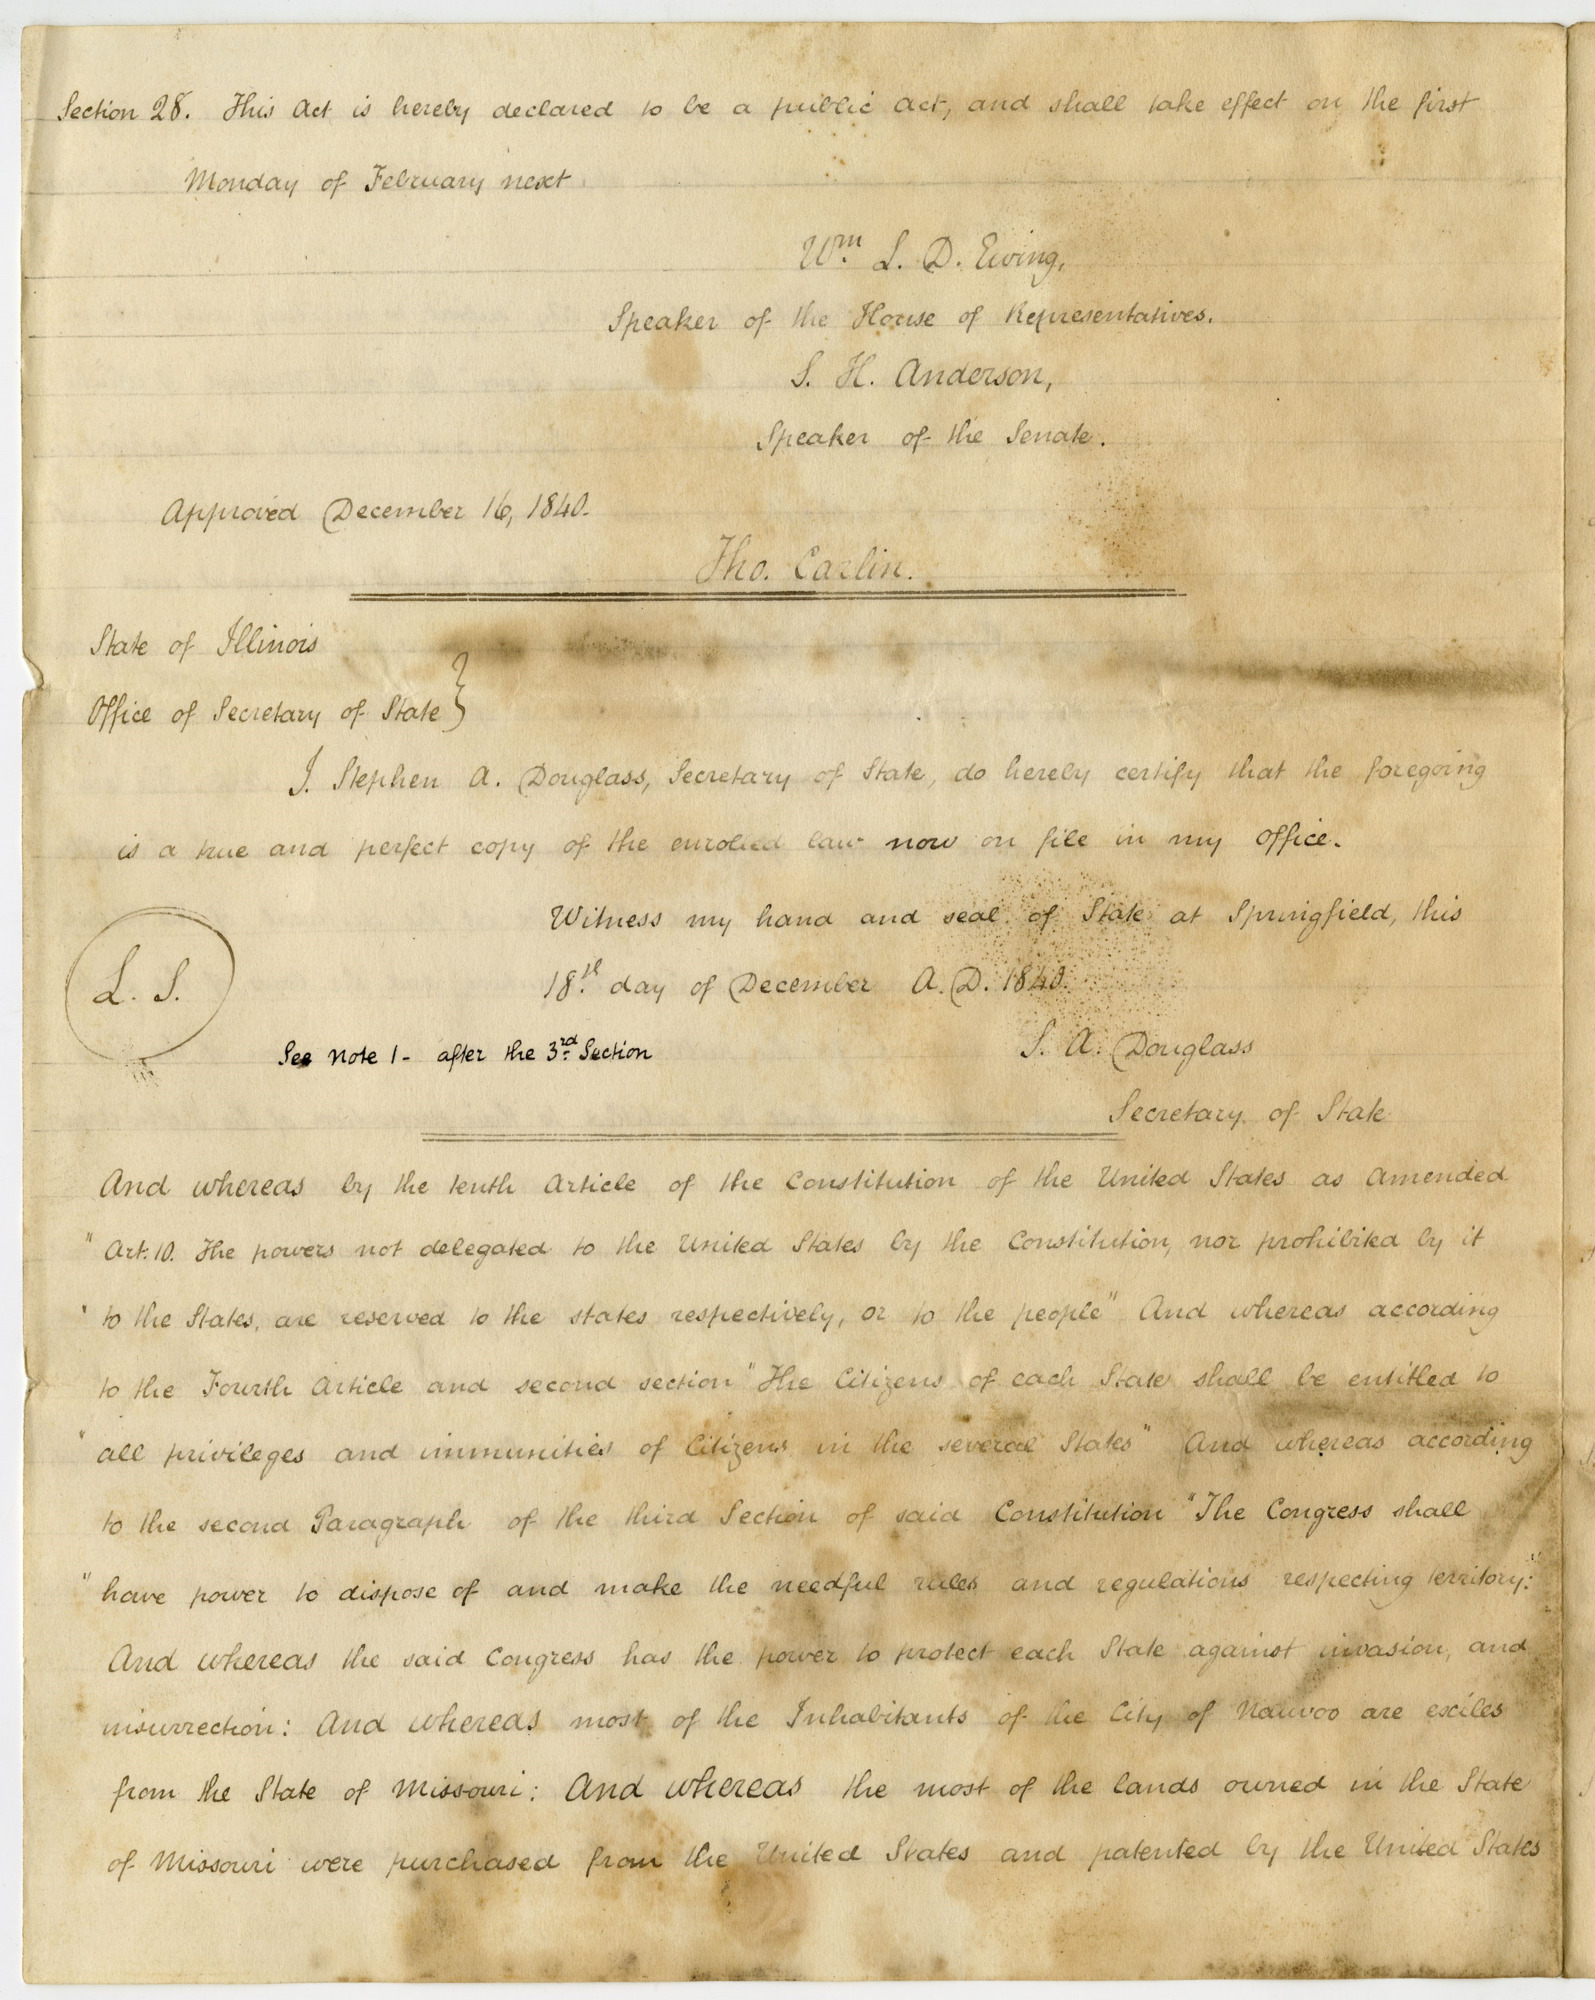 Section 28. This Act is hereby declared to be a public act, and shall take effect on the first
Monday of February next
Wm. L. D. Ewing,
Speaker of the House of Representatives.
S. H. Anderson,
Speaker of the Senate.
Approved December 16, 1840.
Tho. Carlin.
State of Illinois
Office of Secretary of State }
I. Stephen A. Douglass, Secretary of State, do hereby certify that the foregoing
is a true and perfect copy of the enrolled law now on file in my office.
Witness my hand and seal of State at Springfield, this
18th. day of December A. D. 1840.
L. S.
See Note 1 - after the 3rd. Section
S. A. Douglass
Secretary of State
And whereas by the tenth Article of the Constitution of the United States as amended
" Art. 10. The powers not delegated to the United States by the Constitution, nor prohibited by it
" to the States, are reserved to the states respectively, or to the people" And whereas according
to the Fourth Article and second section "The Citizens of each State shall be entitled to
" all privileges and immunities of Citizens in the several States" And whereas according
to the second Paragraph of the third Section of said Constitution "The Congress shall
" have power to dispose of and make the needful rules and regulations respecting territory:"
And whereas the said Congress has the power to protect each State against invasion, and
insurrection: And whereas most of the Inhabitants of the City of Nauvoo are exiles
from the State of Missouri: And whereas the most of the lands owned in the State
of Missouri were purchased from the United States and patented by the United States